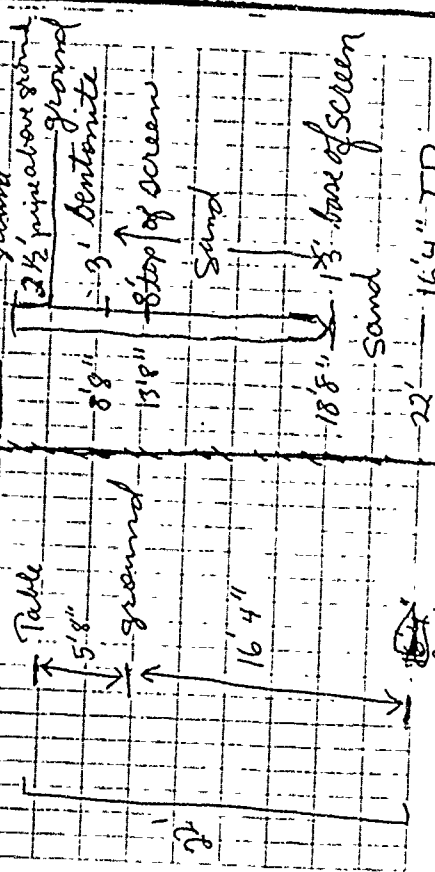 ground
2½' pipe above ground
ground
3' bentonite
8' top of screen
sand
13' base of screen
sand
16'4" TD
8'8"
13'8"
18'8"
22'
Table
5'8"
ground
16'4"
22'